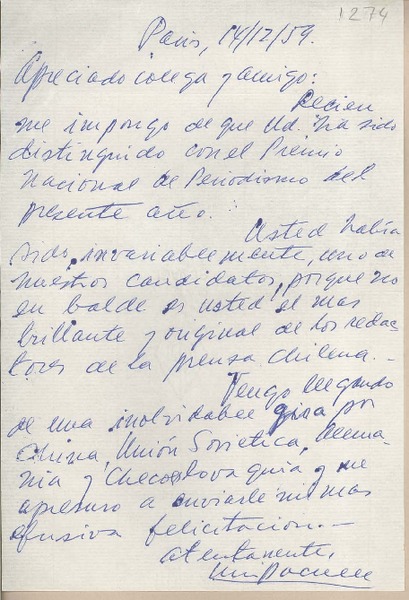 1274
Paris, 14/12/59.
Apreciado colega y amigo:
Recien
me impongo de que Ud. ha sido
distinguido con el Premio
Nacional de Periodismo del
presente año.
Usted había
sido, invariablemente, uno de
nuestros candidatos, porque no
en balde es usted el mas
brillante y original de los redac-
tores de la prensa chilena.-
Vengo llegando
de una inolvidable gira por
China, Unión Sovietica, Alema-
nia y Checoslovaquia y me
apresuro a enviarle mi mas
efusiva felicitacion.-
Atentamente,